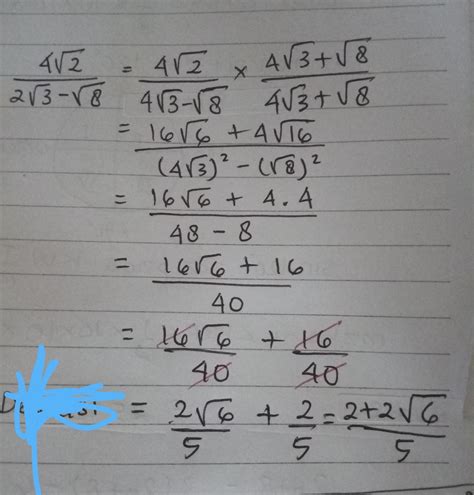 4√2 / 2√3-√8 = 4√2 / 4√3-√8 × 4√3+√8 / 4√3+√8
= 16√6 + 4√16 / (4√3)² - (√8)²
= 16√6 + 4.4 / 48 - 8
= 16√6 + 16 / 40
= 16√6 / 40 + 16 / 40
= 2√6 / 5 + 2 / 5 = 2+2√6 / 5